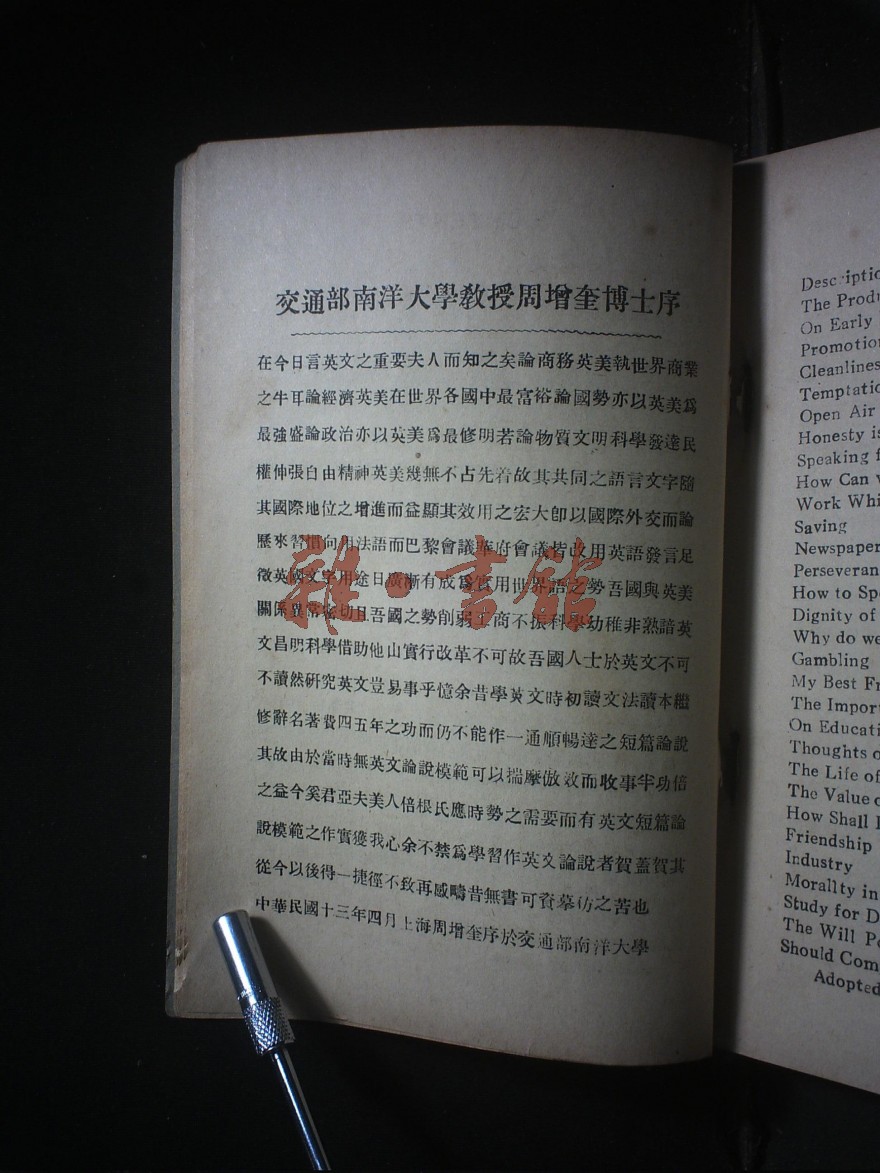 交通部南洋大學教授周增奎博士序
在今日言英文之重要夫人而知之矣論商務英美執世界商業
之牛耳論經濟英美在世界各國中最富裕論國勢亦以英美爲
最強盛論政治亦以英美爲最修明若論物質文明科學發達民
權伸張自由精神英美幾無不占先着故其共同之語言文字隨
其國際地位之增進而益顯其效用之宏大卽以國際外交而論
歷來習慣向用法語而巴黎會議華府會議皆改用英語發言足
徵英國文字用途日廣漸有成爲實用世界語之勢吾國與英美
關係異常密切且吾國之勢削弱工商不振科學幼稚非熟諳英
文昌明科學借助他山實行改革不可故吾國人士於英文不可
不讀然研究英文豈易事乎憶余昔學英文時初讀文法讀本繼
修辭名著費四五年之功而仍不能作一通順暢達之短篇論說
其故由於當時無英文論說模範可以揣摩倣效而收事半功倍
之益今奚君亞夫美人倍根氏應時勢之需要而有英文短篇論
說模範之作實獲我心余不禁爲學習作英文論說者賀蓋賀其
從今以後得一捷徑不致再感疇昔無書可資摹仿之苦也
中華民國十三年四月上海周增奎序於交通部南洋大學
雜·書館
The Produ
On Early
Promotion
Cleanlines
Temptatio
Open Air
Honesty is
Speaking f
How Can
Work Whi
Saving
Newspaper
Perseveran
How to Spe
Dignity of
Why do we
Gambling
My Best Fr
The Impor
On Educati
Thoughts o
The Life of
The Value o
How Shall I
Friendship
Industry
Morallty in
Study for D
The Will Po
Should Com
Adopted